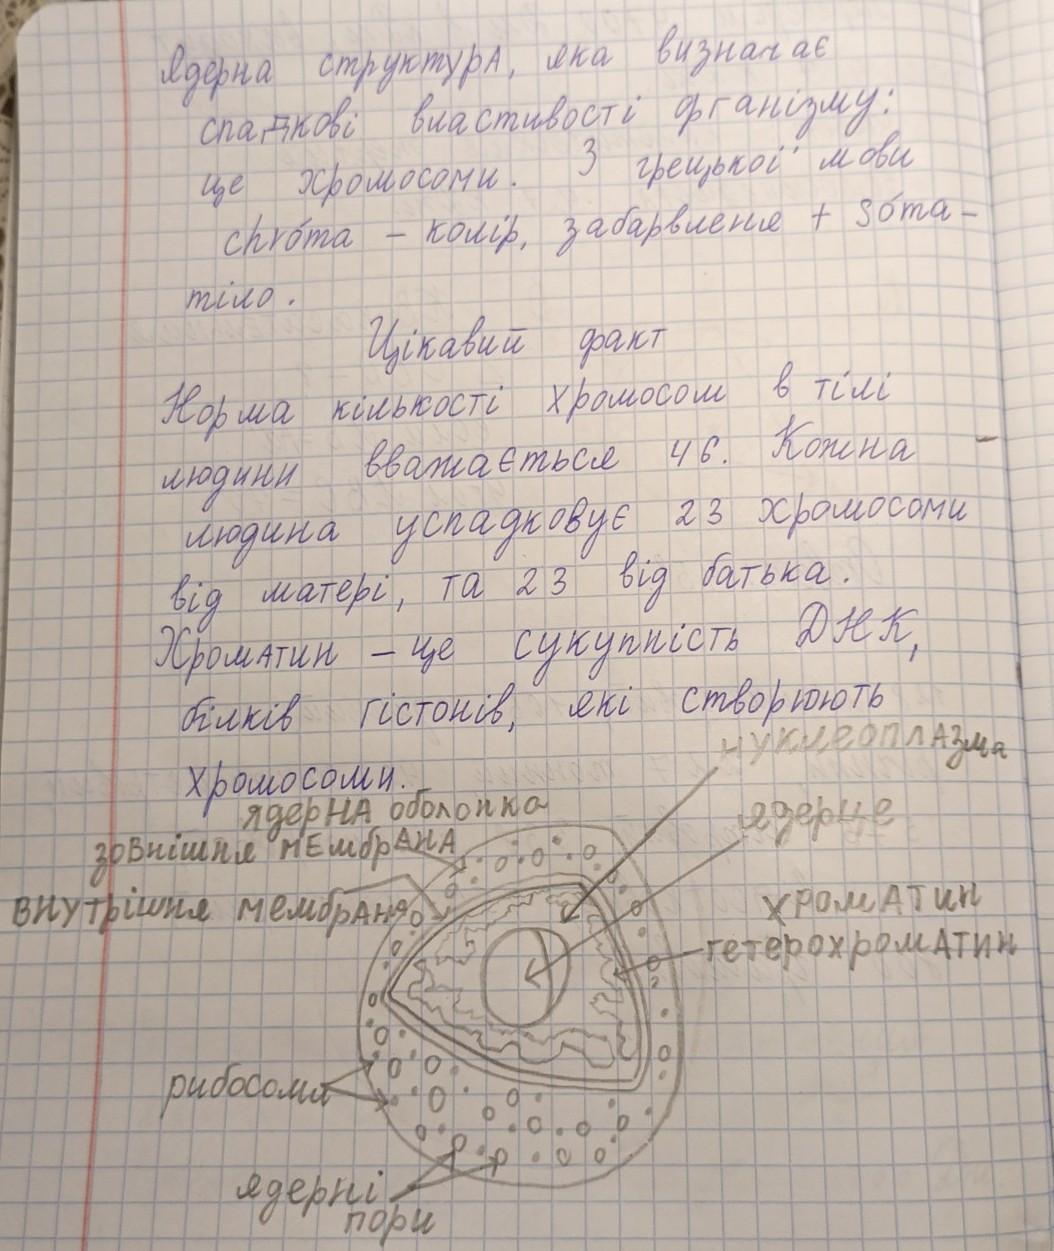 Ядерна структура, яка визначає
спадкові властивості организму:
це хромосоми. З грецької мови
chróma – колір, забарвленя + sóma –
тіло.
Цікавий факт
Норма кількості хромосом в тілі
людини вважається 46. Кожна
людина успадковує 23 хромосоми
від матері, та 23 від батька.
Хроматин – це сукупність ДНК,
білків гістонів, які створюють
хромосоми.
нуклеоплазма
ядерна оболонка
ядерце
зовнішня мембрана
внутрішня мембрана
хроматин
гетерохроматин
рибосоми
ядерні
пори